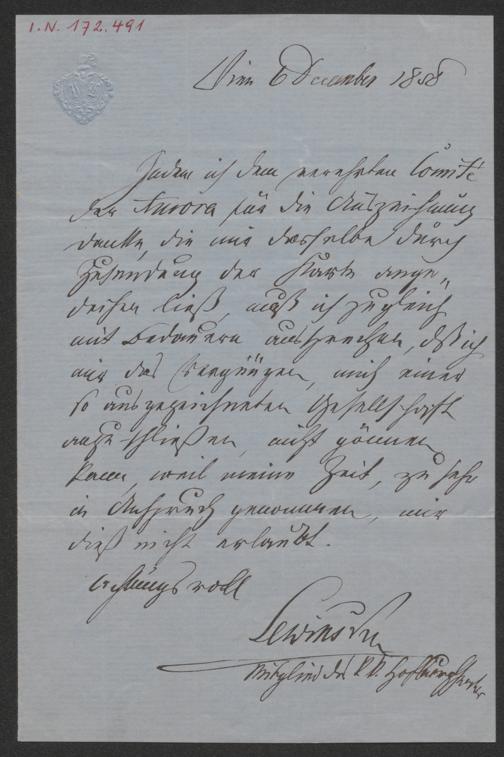 I.N. 172.491
Wien 6 December 1858
Indem ich dem verehrten Comité
der Aurora für die Auszeichnung
danke, die mir dasselbe durch
Zusendung der Karte ange„
deihen ließ, muß ich zugleich
mit Bedauern aussprechen, daß ich
mir das Vergnügen, mich einer
so ausgezeichneten Gesellschaft
anzuschließen, nicht gönnen
kann, weil meine Zeit, zu sehr
in Anspruch genommen, mir
dieß nicht erlaubt.
Achtungsvoll
Lewinsky
Mitglied des k.k. Hofburgtheaters